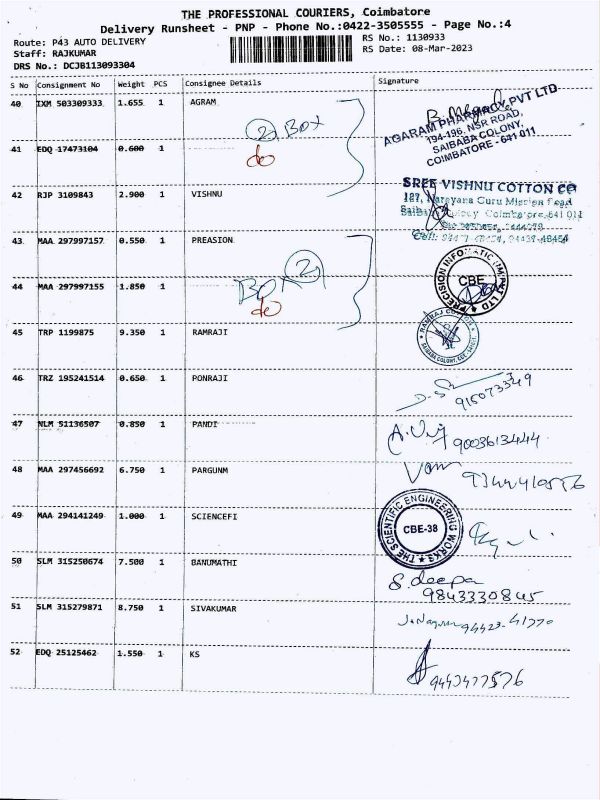 THE PROFESSIONAL COURIERS, Coimbatore
Delivery Runsheet - PNP - Phone No.:0422-3505555 - Page No.:4
Route: P43 AUTO DELIVERY
RS No.: 1130933
Staff: RAJKUMAR
RS Date: 08-Mar-2023
DRS No.: DCJB113093304
S No Consignment No Weight PCS Consignee Details Signature
40 IXM 503309333 1.655 1 AGRAM
2 BOX
AGARAM PHARMACY PVT LTD
194-196, NSR ROAD,
SAIBABA COLONY,
COIMBATORE - 641 011
41 EDQ 17473104 0.600 1
do
42 RJP 3109843 2.900 1 VISHNU
SREE VISHNU COTTON CO
187, Narayana Guru Mission Road
Colony Coimbatore, 641 011
43 MAA 297997157 0.550 1 PREASION
BOX 2
PRECISION INFOMATIC PVT LTD
CBE
44 MAA 297997155 1.850 1
do
45 TRP 1199875 9.350 1 RAMRAJI
RAMRAJ
46 TRZ 195241514 0.650 1 PONRAJI
915073349
47 NLM 51136507 0.850 1 PANDI
9003613444
48 MAA 297456692 6.750 1 PARGUNM
49 MAA 294141249 1.000 1 SCIENCEFI
THE SCIENTIFIC ENGINEERING WORKS
CBE-38
50 SLM 315250674 7.500 1 BANUMATHI
S. deepa
9843330845
51 SLM 315279871 8.750 1 SIVAKUMAR
52 EDQ 25125462 1.550 1 KS